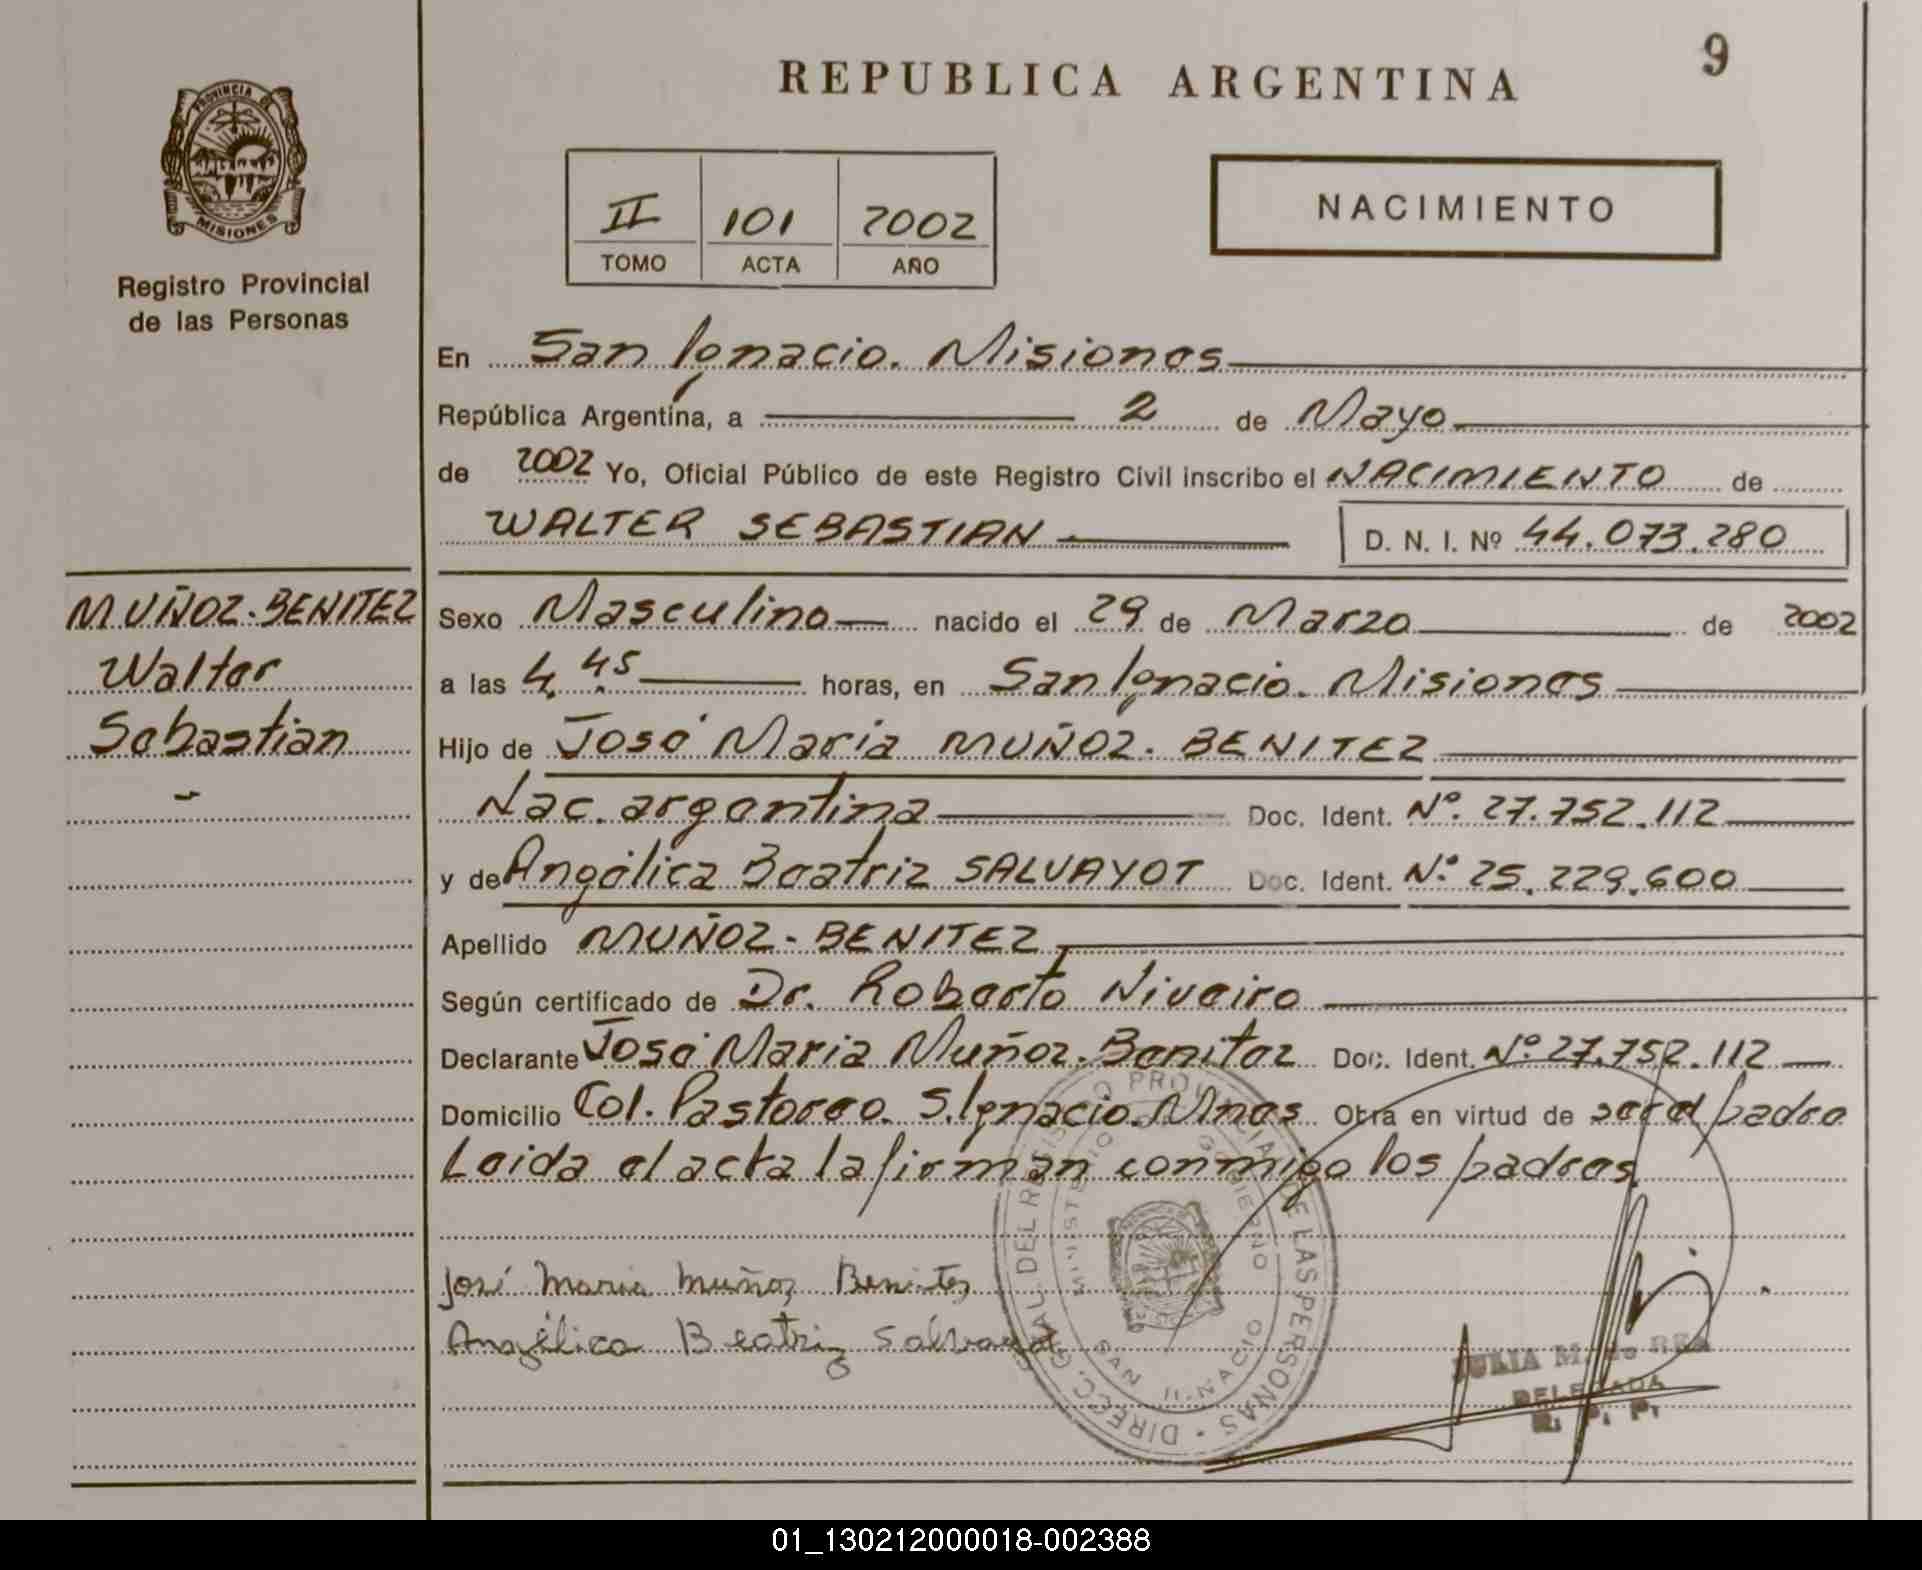 REPUBLICA ARGENTINA
9
PROVINCIA DE
MISIONES
Registro Provincial
de las Personas
II 101 2002
TOMO ACTA AÑO
NACIMIENTO
En San Ignacio. Misiones
República Argentina, a 2 de Mayo
de 2002 Yo, Oficial Público de este Registro Civil inscribo el NACIMIENTO de
WALTER SEBASTIAN D. N. I. Nº 44.073.280
MUÑOZ-BENITEZ
Walter
Sebastian
-
Sexo Masculino nacido el 29 de Marzo de 2002
a las 4.45 horas, en San Ignacio. Misiones
Hijo de José Maria MUÑOZ-BENITEZ
Nac. argentina Doc. Ident. Nº 27.752.112
y de Angélica Beatriz SALVAYOT Doc. Ident. Nº 25.229.600
Apellido MUÑOZ-BENITEZ
Según certificado de Dr. Roberto Niveiro
Declarante José Maria Muñoz-Benitez Doc. Ident. Nº 27.752.112
Domicilio Col. Pastoreo. S. Ignacio. Mnes. Obra en virtud de ser el padre
Leida el acta la firman conmigo los padres
José Maria Muñoz Benitez
Angélica Beatriz Salvayot
DIREC. GRAL. DEL REGISTRO PROVINCIAL DE LAS PERSONAS
MINISTERIO DE GOBIERNO
SAN IGNACIO
JULIA M. de REA
DELEGADA
R. P. P.
01_130212000018-002388